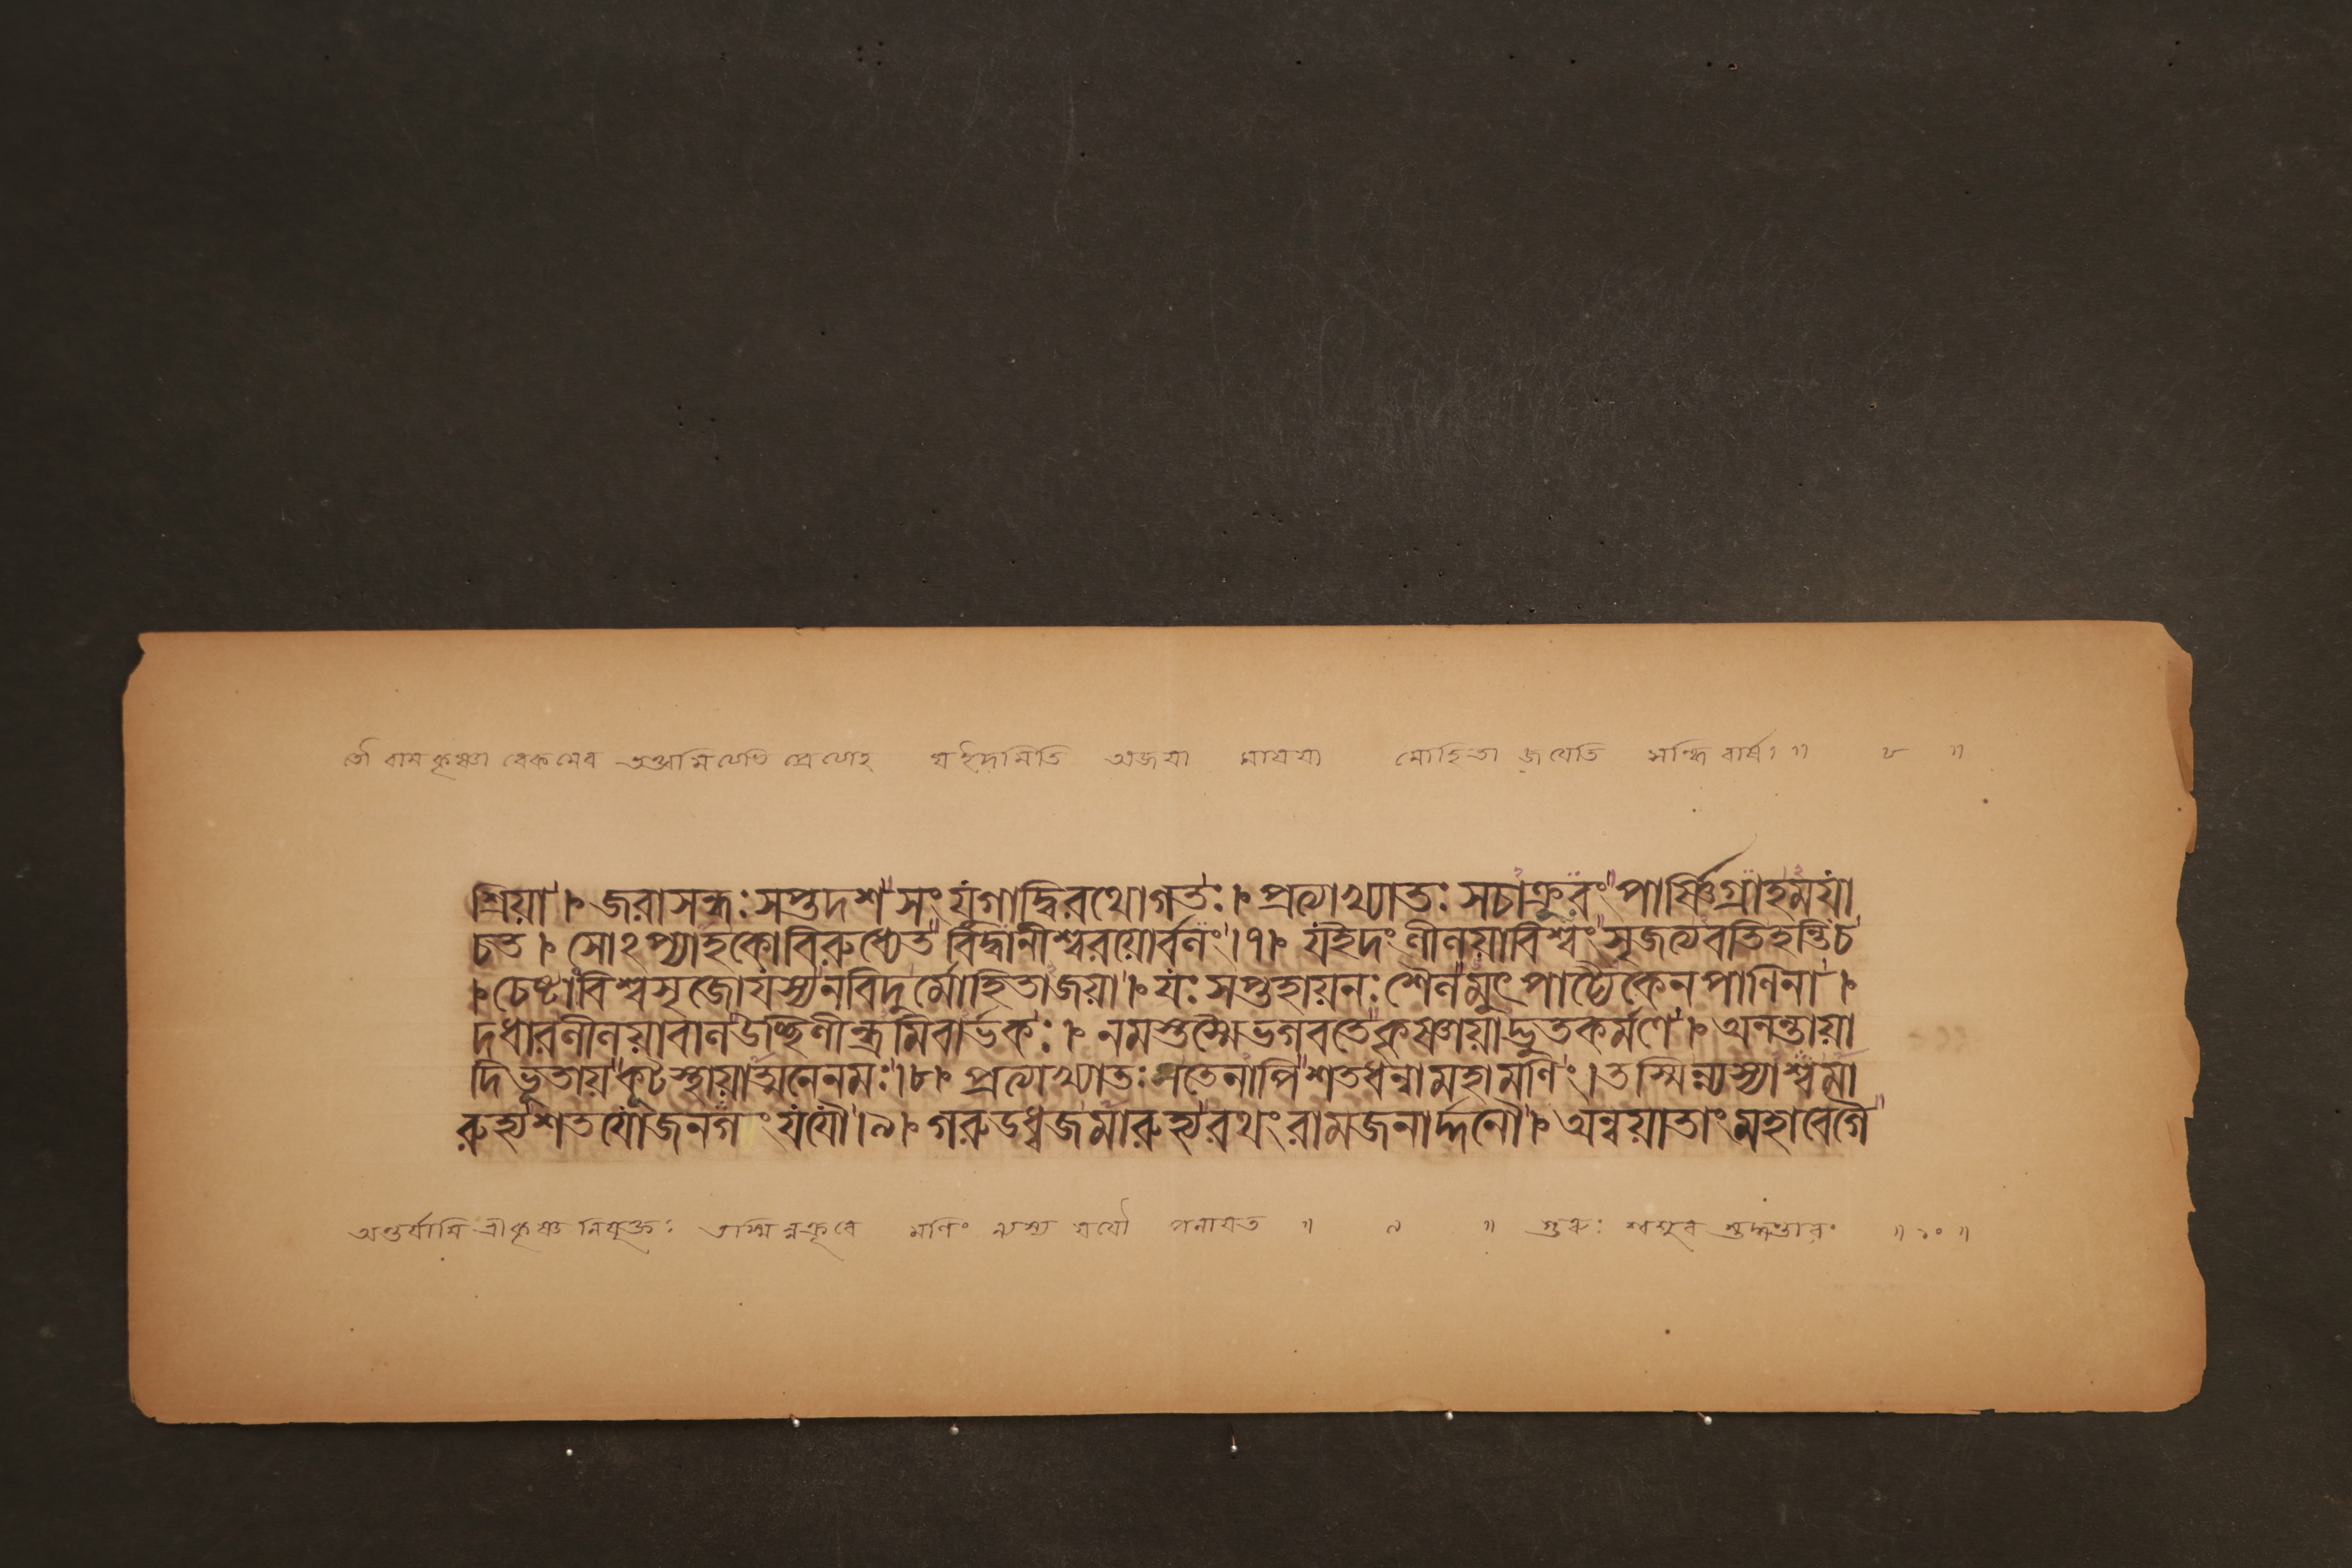 তৌ রামকৃষ্ণা বেকমেব যইদমিতি অজয়া মায়যা মোহিতা জযেতি সন্ধি বার্ষ॥ ৮ ॥
শ্রিয়া। জরাসন্ধঃসপ্তদশসংযুগাদ্বিরথোগতঃ। প্রত্যাখ্যাতঃসচাক্রূরংপার্ষ্ণিগ্রাহময়া
চত। সোঽপ্যাহকোবিরুধ্যেতবিদ্বানীশ্বরয়োর্বনং।৭। যইদংলীলয়াবিশ্বংসৃজত্যবতিহন্তিচ
।চেষ্টাংবিশ্বসৃজোযস্যনবিদুর্মোহিতাজয়া। যঃসপ্তহায়নঃশৈলমুৎপাট্যৈকেনপাণিনা।
দধারলীলয়াবালউচ্ছিলীন্ধ্রমিবার্ভকঃ। নমস্তস্মৈভগবতেকৃষ্ণায়াদ্ভুতকর্মণে। অনন্তায়া
দিভূতায়কূটস্থায়াত্মনেনমঃ।৮। প্রত্যাখ্যাতঃসতেনাপিশতধন্বামহামণিং। তস্মিন্ন্যস্যাশ্বমা
রুহ্যশতযোজনগংযযৌ।৯। গরুডধ্বজমারুহ্যরথংরামজনার্দ্দনৌ। অন্বয়াতাংমহাবেগৈ
অন্তর্যামি শ্রীকৃষ্ণ নিযুক্তঃ তস্মিন্নক্রূরে মণিং ন্যস্য যযৌ পলাযত ॥ ৯ ॥ গুরুঃ শ্বশুর ॥ ১০ ॥